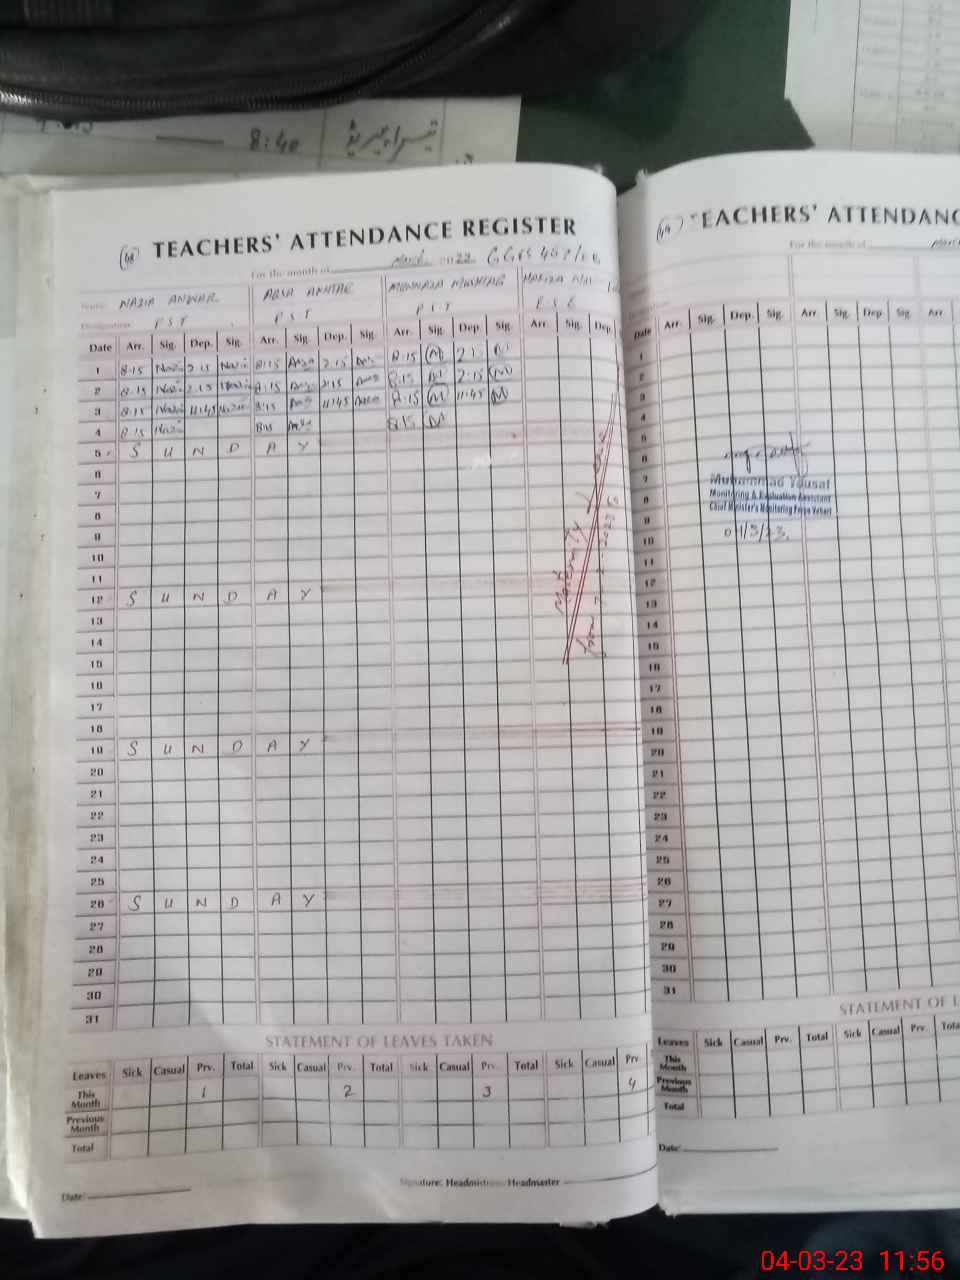 8:40 تیسرا پیریڈ
TEACHERS' ATTENDANCE REGISTER
For the month of March 2022 GGPS
Name: NAZIA ANWAR AQSA AKHTAR MUNNAZA MUSHTAQ
Designation PST PST PST ESE
Date Arr. Sig. Dep. Sig. Arr. Sig. Dep. Sig. Arr. Sig. Dep. Sig. Arr. Sig. Dep.
1 8.15 2.15 8.15 2.15 8.15
2 8.15 2.15 8.15 2.15 8.15 2.15
3 8.15 11.45 8.15 11.45 8.15 11.45
4 8.15 8.15 8.15
5 S U N D A Y
6
7
8
9
10
11
12 S U N D A Y
13
14
15
16
17
18
19 S U N D A Y
20
21
22
23
24
25
26 S U N D A Y
27
28
29
30
31
Maternity Leave
from
STATEMENT OF LEAVES TAKEN
Leaves Sick Casual Prv. Total Sick Casual Prv. Total Sick Casual Prv. Total Sick Casual Prv.
This Month 1 2 3 4
Previous Month
Total
Date: Signature: Headmistress/Headmaster
TEACHERS' ATTENDANC
For the month of
Date Arr. Sig. Dep. Sig. Arr. Sig. Dep. Sig. Arr.
1
2
3
4
5
6
7
8
9
10
11
12
13
14
15
16
17
18
19
20
21
22
23
24
25
26
27
28
29
30
31
Muhammad Yousaf
Monitoring & Evaluation Assistant
Chief Minister's Monitoring Force Vehari
01/3/23
STATEMENT OF L
Leaves Sick Casual Prv. Total Sick Casual Prv. Tota
This Month
Previous Month
Total
Date:
04-03-23 11:56